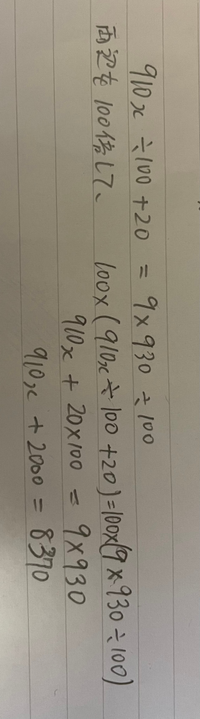 910x ÷ 100 + 20 = 9 × 930 ÷ 100
両辺を100倍して、 100×(910x ÷ 100 + 20) = 100×(9 × 930 ÷ 100)
910x + 20×100 = 9 × 930
910x + 2000 = 8370